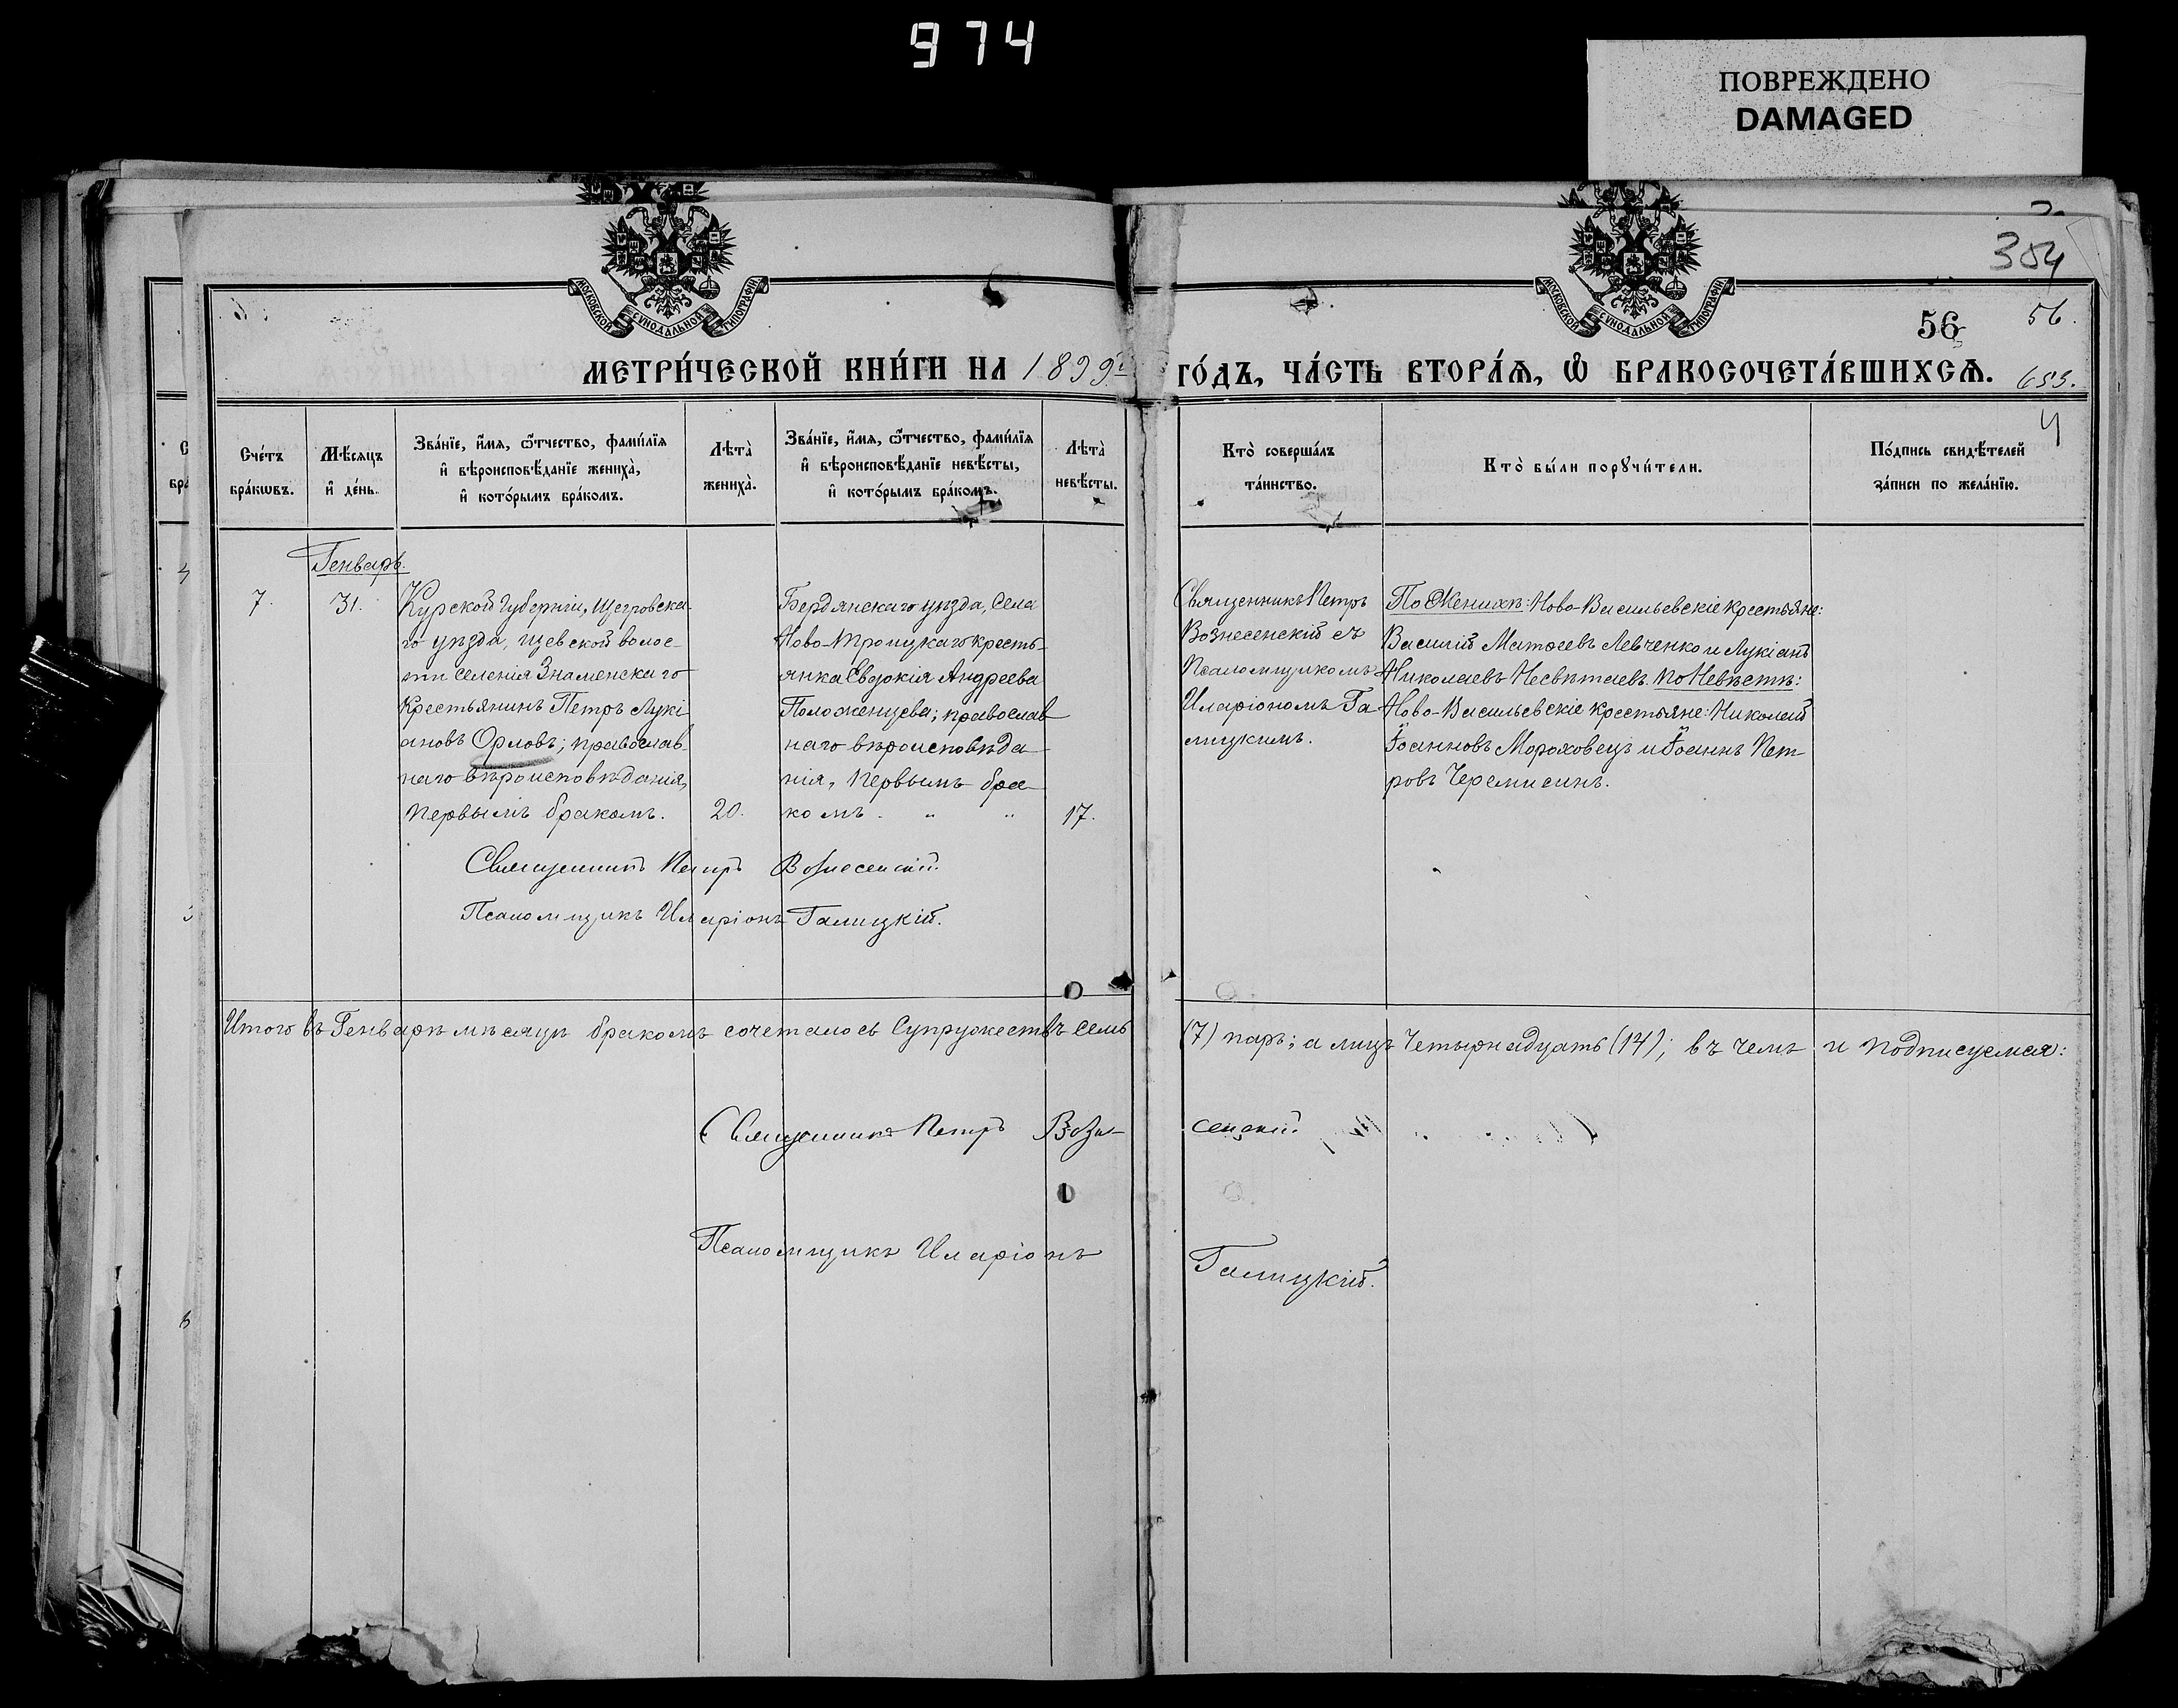 974
ПОВРЕЖДЕНО
DAMAGED
354
МОСКОВСКОЙ СУНОДАЛЬНОЙ ТИПОГРАФІИ
МОСКОВСКОЙ СУНОДАЛЬНОЙ ТИПОГРАФІИ
56 56.
МЕТРИ́ЧЕСКОЙ КНИ́ГИ НА 1899 ГО́ДЪ, ЧА́СТЬ ВТОРА́Ѧ, Ѽ БРАКОСОЧЕТА́ВШИХСѦ. 653.
4
Сче́тъ бра́кѡвъ.
Мѣ́сяцъ и҆ де́нь.
Зва́нїе, и҆́мя, ѻ҆́тчество, фами́лїя
и҆ вѣроисповѣ́данїе жениха̀,
и҆ кото́рымъ бра́комъ.
Лѣта̀ жениха̀.
Зва́нїе, и҆́мя, ѻ҆́тчество, фами́лїя
и҆ вѣроисповѣ́данїе невѣ́сты,
и҆ кото́рымъ бра́комъ.
Лѣта̀ невѣ́сты.
Кто̀ соверша́лъ та́инство.
Кто̀ бы́ли порꙋчи́тели.
По́дпись свидѣ́телей за́писи по жела́нїю.
Генварь.
7. 31.
Курской губерніи, Щегровска-
го уѣзда, Щевской волос-
ти селенія Знаменскаго
Крестьянинъ Петръ Лукі-
ановъ Орловъ; православ-
наго вѣроисповѣданія,
первымъ бракомъ. 20.
Бердянскаго уѣзда, Села
Ново-Троицкаго кресть-
янка Евдокія Андреева
Положенцева; православ
наго вѣроисповѣда-
нія, первымъ бра-
комъ. " " 17.
Священникъ Петръ
Вознесенскій съ
Псаломщикомъ
Иларіономъ Га-
лицкимъ.
По Женихѣ: Ново-Васильевскіе крестьяне:
Василій Матѳеевъ Левченко и Лукіанъ
Николаевъ Несвѣтаевъ. По Невѣстѣ:
Ново-Васильевскіе крестьяне: Николай
Іоанновъ Мороховецъ и Іоаннъ Пет-
ровъ Черемисинъ.
Священникъ Петръ Вознесенскій.
Псаломщикъ Иларіонъ Галицкій.
Итого въ Генварѣ мѣсяцѣ бракомъ сочеталось Супружествъ семь (7) паръ; а лицъ Четырнадцать (14); въ чемъ и подписуемся:
Священникъ Петръ Возне- сенскій
Псаломщикъ Иларіонъ Галицкій.